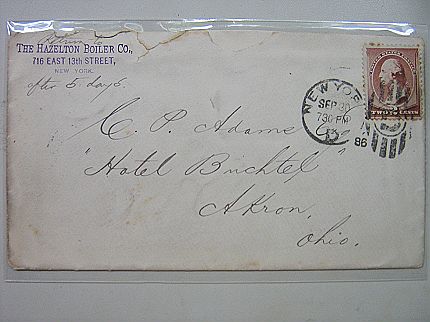 Return to
THE HAZELTON BOILER CO.,
716 EAST 13TH STREET,
NEW YORK.
after 5 days.
NEW YORK
SEP 30
730 PM
86
N
TWO CENTS
C. P. Adams Esq
"Hotel Buchtel"
Akron,
Ohio.